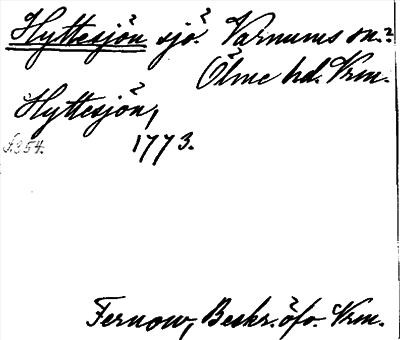 Hyttesjön sjö. Varnums sn.
Ölme hd. Vrm.
Hyttesjön,
s. 354. 1773.
Fernow, Beskr. öfv. Vrm.